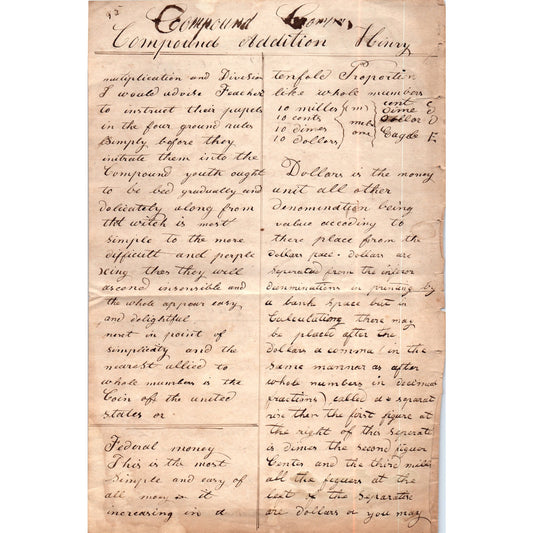 95 Compound
Compound Addition Henry
multiplication and Division
I would advise Teacher
to instruct their pupels
in the four ground rules
Simply before they
initrate them into the
Compound youth ought
to be led gradually and
delicately along from
that witch is most
simple to the more
difficult and perple
xing thus they will
ascend insensible and
the whole appear easy
and delightful
next in point of
simplicity and the
nearest allied to
whole numbers is the
Coin off the united
states or
Federal money
This is the most
Simple and easy of
all money it
increasing in a
tenfold Proportion
like whole numbers
10 milles (m) cent C
10 cents make dime D
10 dimes one Dollor D
10 dollars Eagle E
Dollars is the money
unit all other
denomination being
value accoding to
there place from the
dollars pace. dollars are
seperated from the inferior
denominations in printing by
a bank space but in
Calculationg there may
be placed after the
Dollars a comma (in the
same mannar as after
whole numbers in decimal
fractions) called a seperat
rise then the first figure at
the right of this seperate
is dimes the second figuer
Centes and the third milles
all the feguers at the
left of the separatise
are dollars or you may